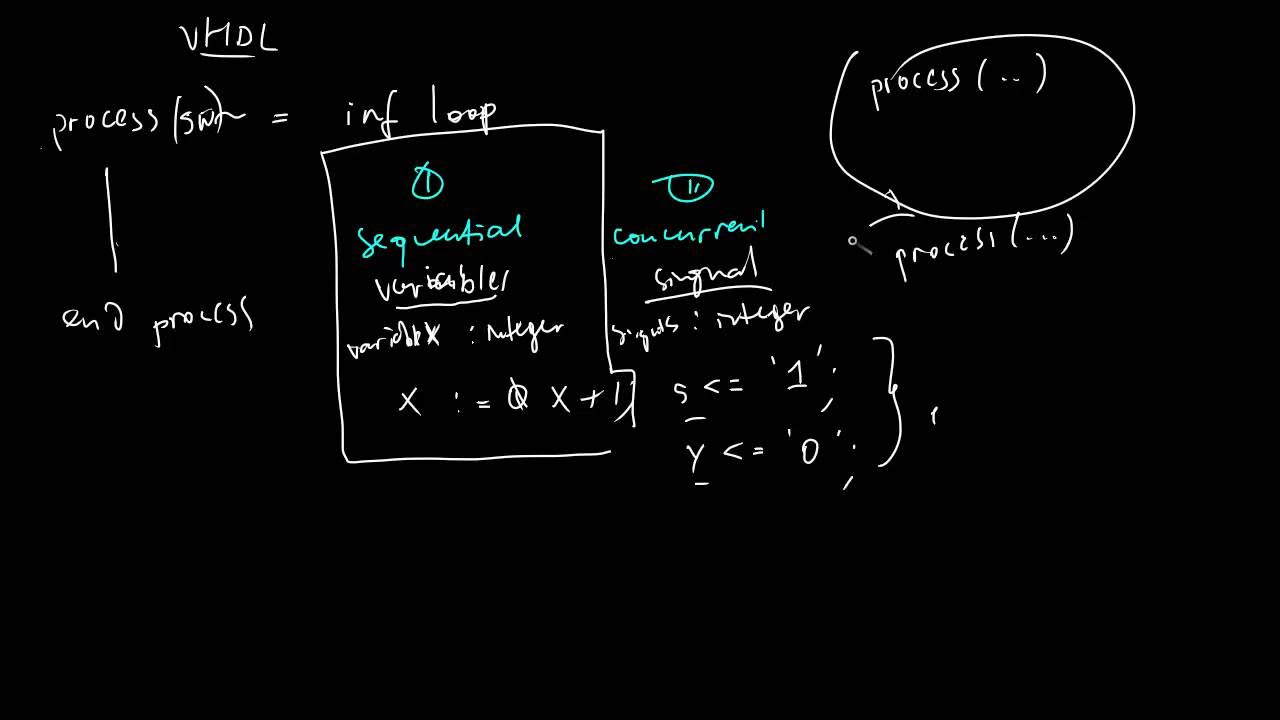 VHDL
process (sw) = inf loop
end process
①
sequential
variables
variable x : integer
X := 0 X + 1;
11
concurrent
signal
signals : integer
s <= '1';
y <= '0';
process (...)
process (...)